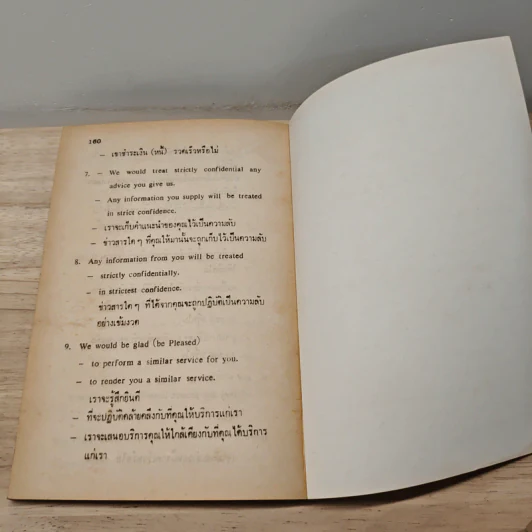 160
– เขาชำระเงิน (หนี้) รวดเร็วหรือไม่
7. – We would treat strictly confidential any
advice you give us.
– Any information you supply will be treated
in strict confidence.
– เราจะเก็บคำแนะนำของคุณไว้เป็นความลับ
– ข่าวสารใด ๆ ที่คุณให้มานั้นจะถูกเก็บไว้เป็นความลับ
8. Any information from you will be treated
– strictly confidentially.
– in strictest confidence.
ข่าวสารใด ๆ ที่ได้จากคุณจะถูกปฏิบัติเป็นความลับ
อย่างเข้มงวด
9. We would be glad (be Pleased)
– to perform a similar service for you.
– to render you a similar service.
เราจะรู้สึกยินดี
– ที่จะปฏิบัติคล้ายคลึงกับที่คุณให้บริการแก่เรา
– เราจะเสนอบริการคุณให้ใกล้เคียงกับที่คุณได้บริการ
แก่เรา